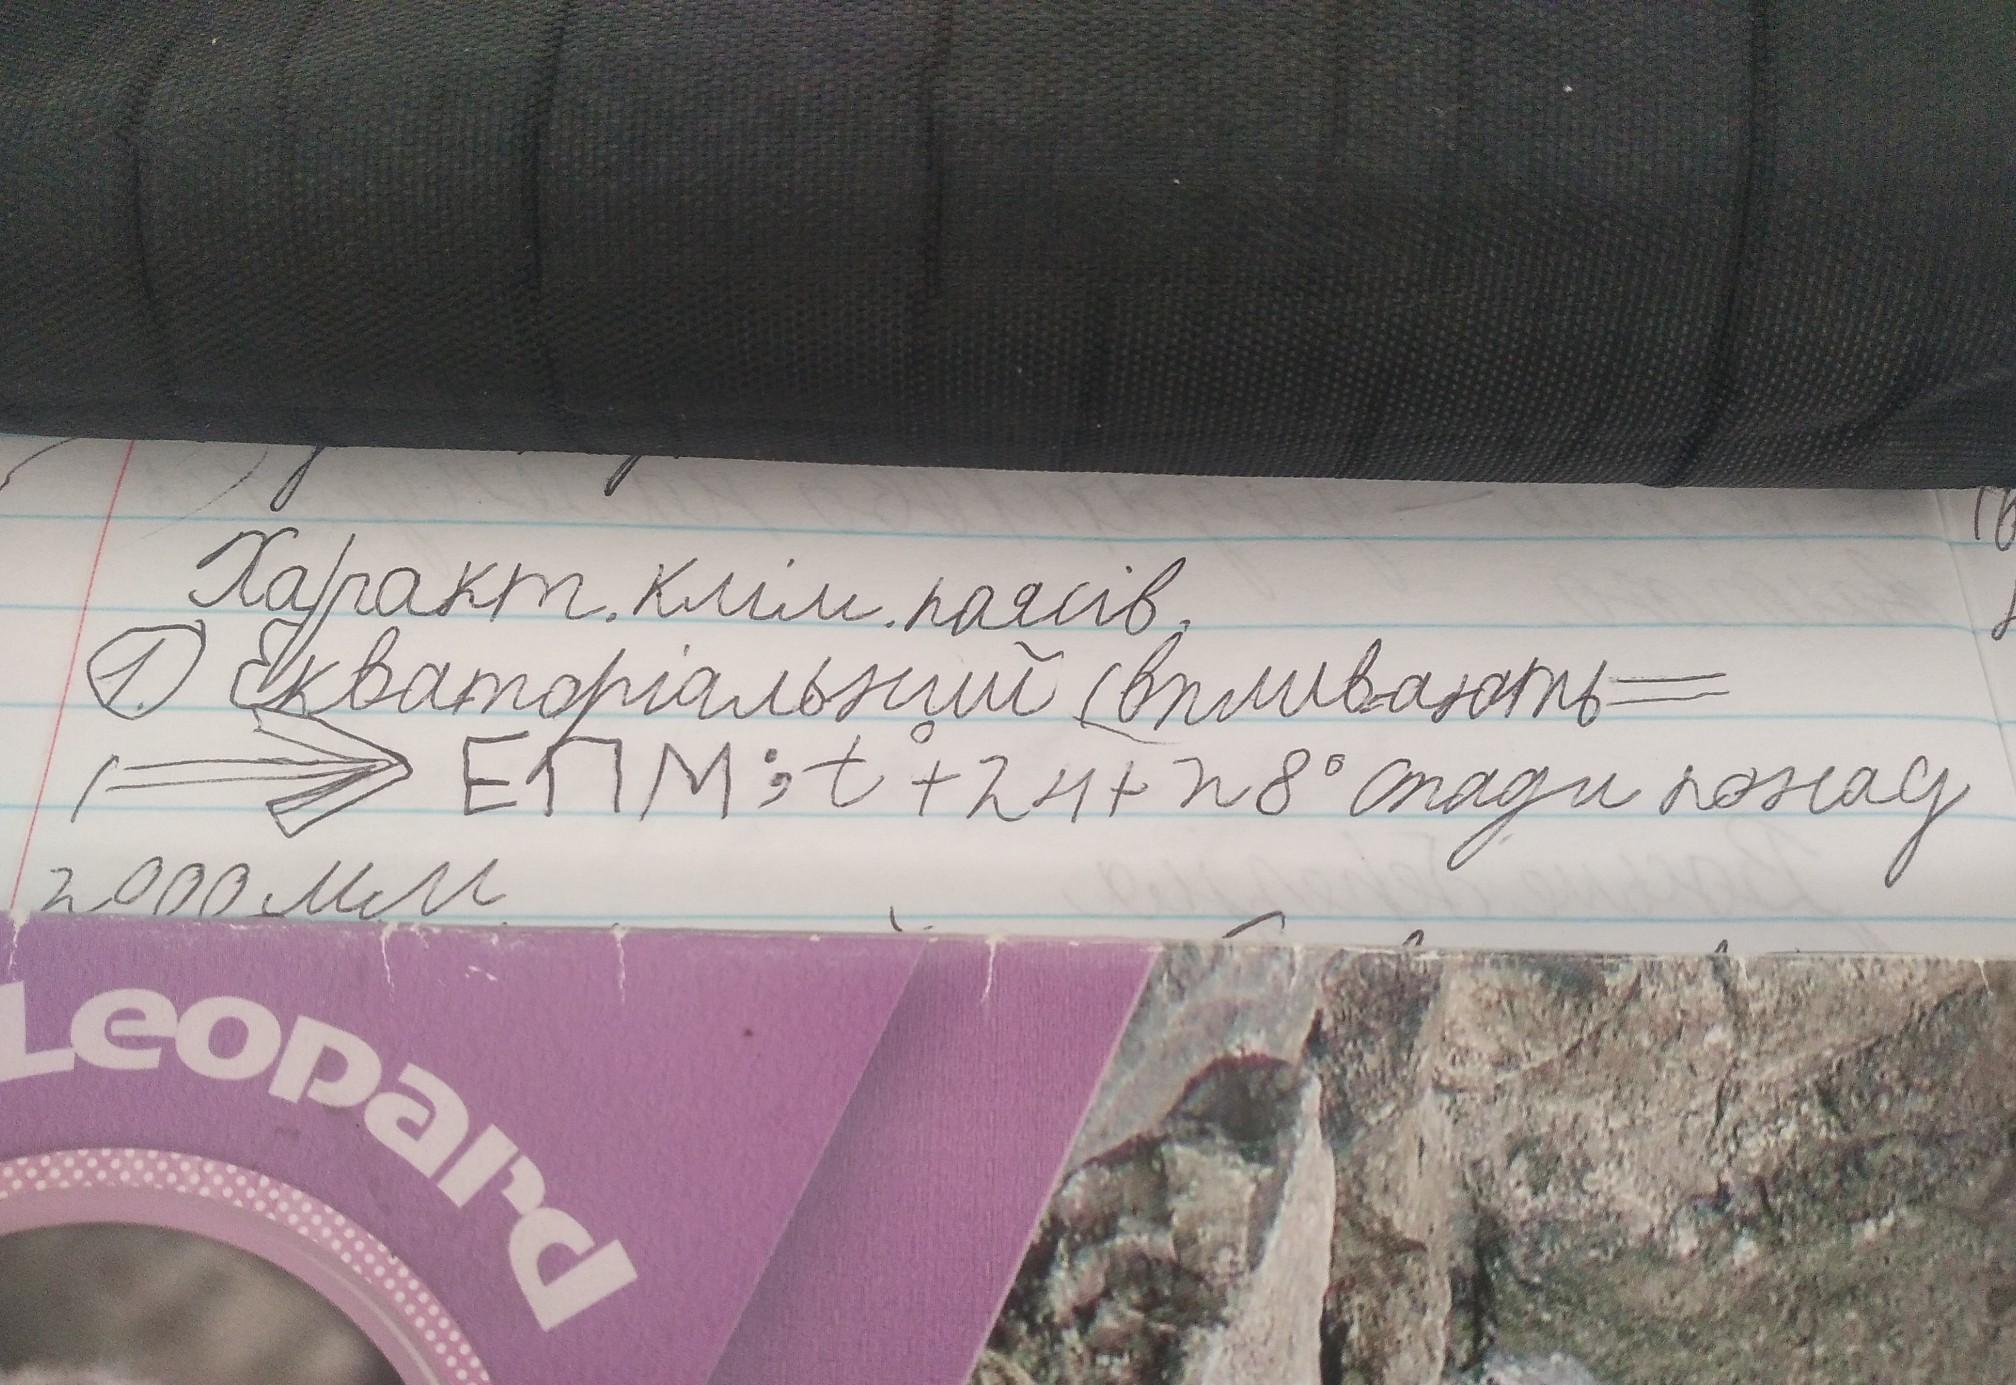 Характ. клім. поясів.
1. Екваторіальний (впливають =
=> ЕПМ; t° +24+28° опади понад
2000 мм
Leopard